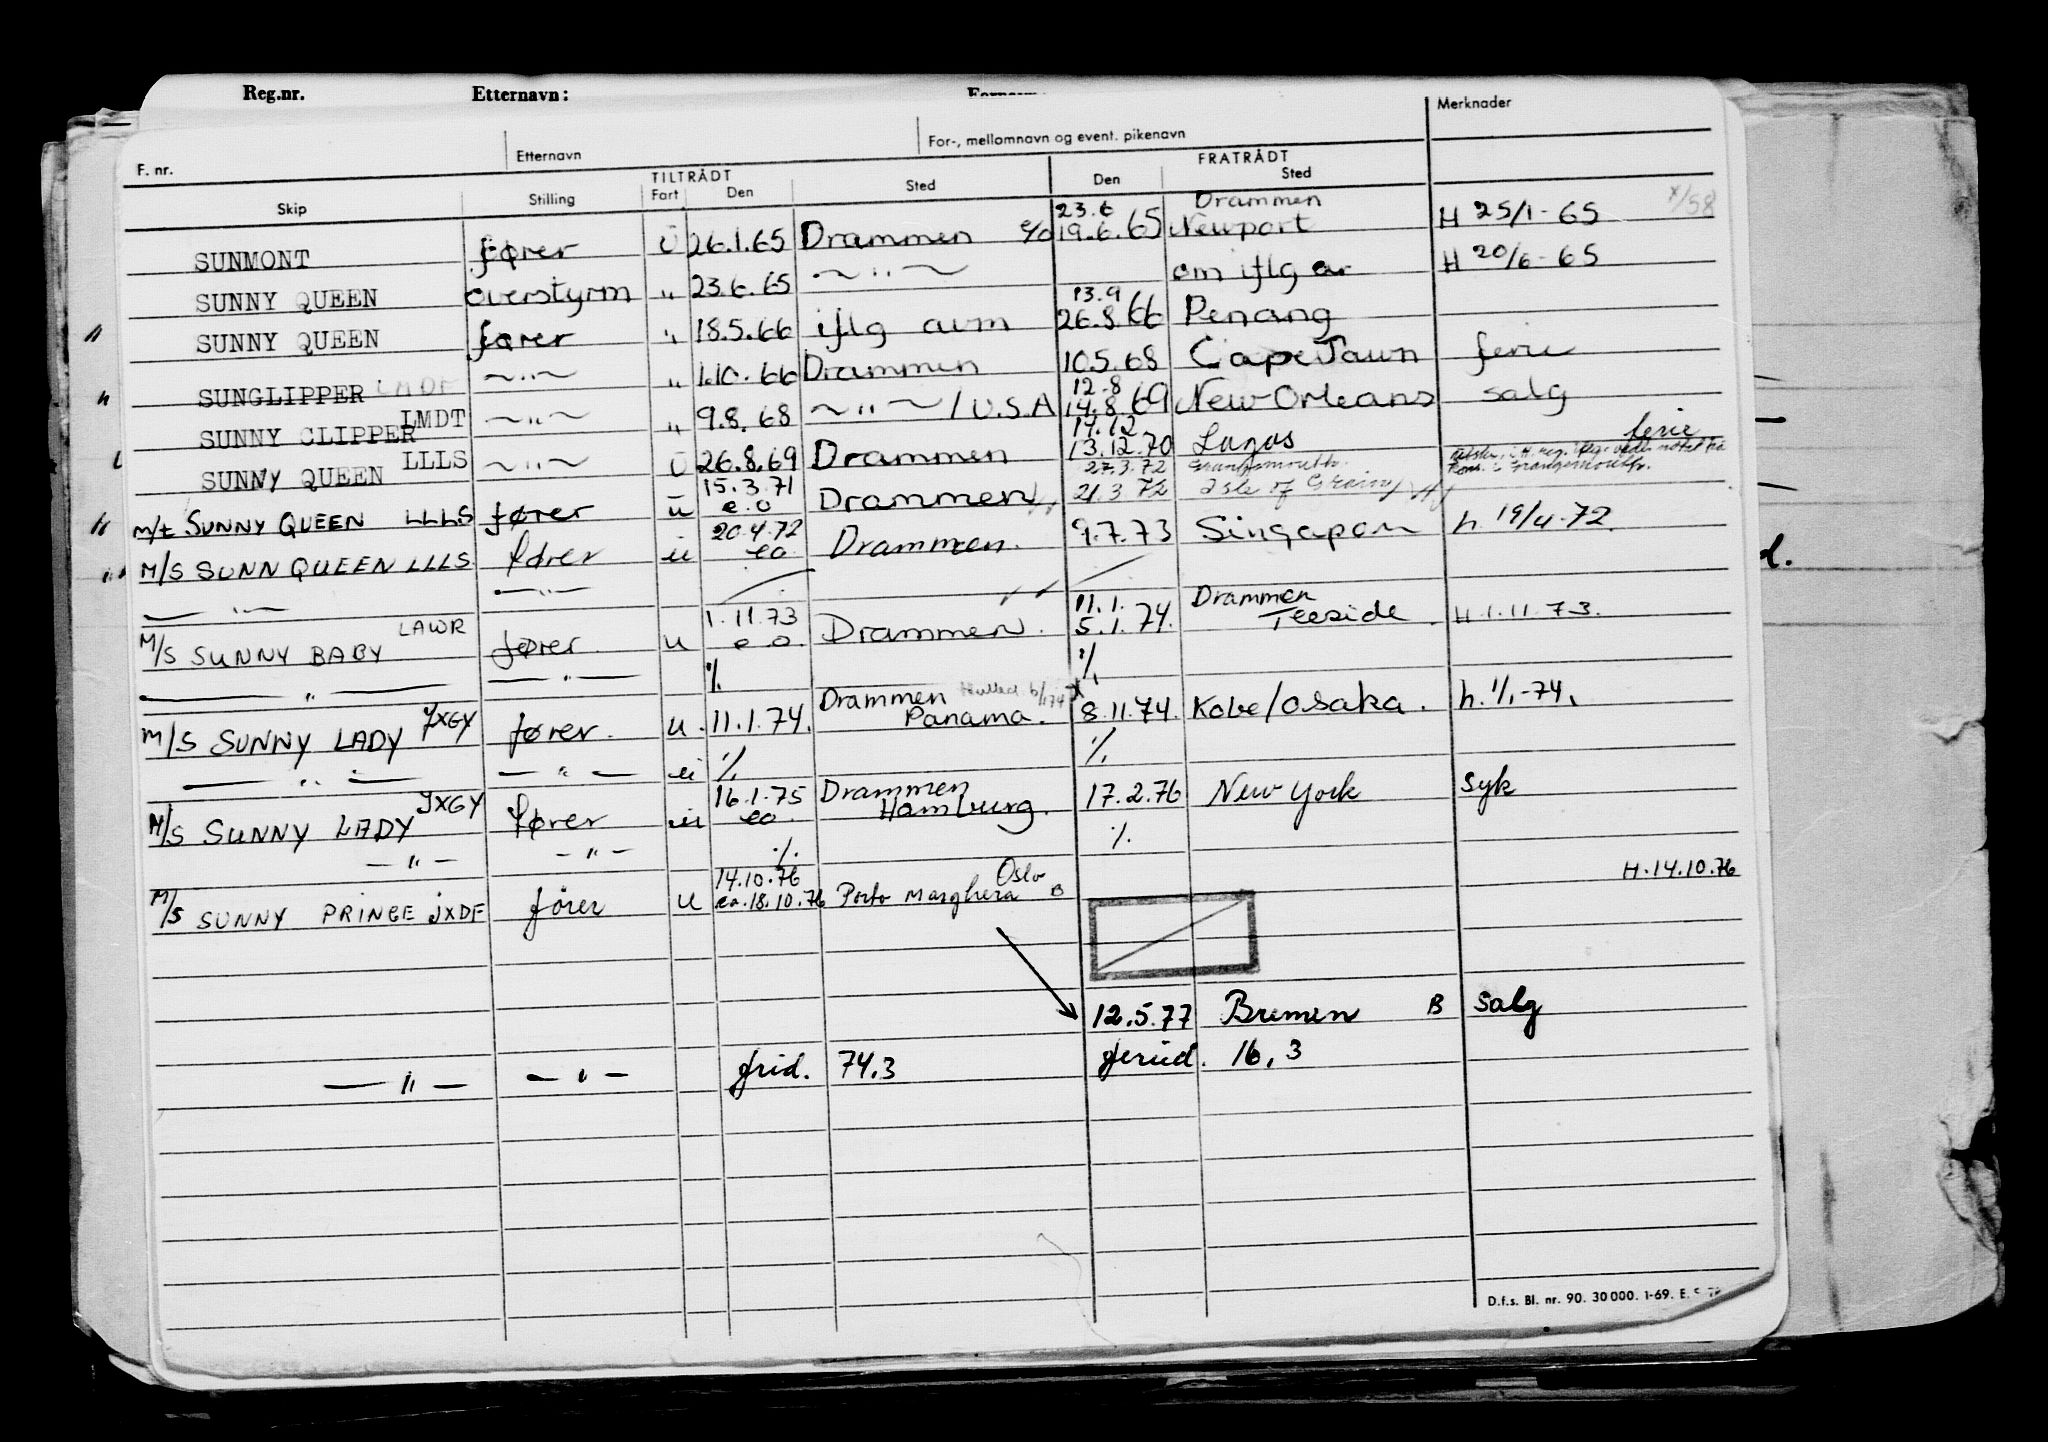 Reg.nr. Etternavn:
Merknader
F. nr. Etternavn For-, mellomnavn og event. pikenavn
TILTRÅDT FRATRÅDT
Skip Stilling Fart Den Sted Den Sted
23.6 Drammen
SUNMONT fører U 26.1.65 Drammen e/o 19.6.65 Newport H 25/1-65 x/58
SUNNY QUEEN overstyrm " 23.6.65 ~"~ om iflg H 20/6-65
13.9
SUNNY QUEEN fører " 18.5.66 iflg 26.8.66 Penang
SUNGLIPPER ~"~ " 1.10.66 Drammen 10.5.68 Cape Town ferie
12.8
SUNNY CLIPPER LMDT ~"~ " 9.8.68 ~"~/U.S.A 14.8.69 New Orleans salg
14.12 ferie
SUNNY QUEEN LLLS ~"~ U 26.8.69 Drammen 13.12.70 Lagos
15.3.71 27.3.72 Grangemouth
m/t SUNNY QUEEN LLLS fører u e.o Drammen 21.3.72 Isle of Grain
20.4.72
M/S SUNN QUEEN LLLS fører u eo Drammen. 9.7.73 Singapore h. 19/4-72.
— " — — " —
1.11.73 11.1. Drammen
M/S SUNNY BABY LAWR fører u e o Drammen. 5.1.74. Teeside. H.1.11.73.
— " — — " — % %
Drammen
M/S SUNNY LADY JXGY fører. u. 11.1.74. Panama. 8.11.74. Kobe/Osaka. h. 1/1-74.
— " — — " — u % %
16.1.75 Drammen
M/S SUNNY LADY JXGY fører u eo. Hamburg. 17.2.76 New York Syk
— " — — " — % %
14.10.76 Oslo H.14.10.76
M/S SUNNY PRINCE JXDF fører u ca.18.10.76 Porto Marghera B
12.5.77 Bremen B Salg
— " — — " — frid. 74.3 feried. 16,3
D.f.s. Bl. nr. 90. 30 000. 1-69. E.